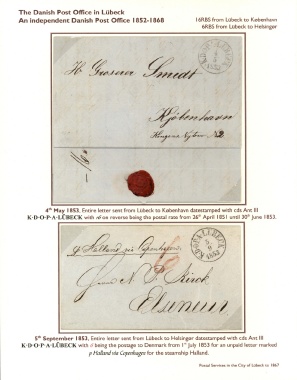 The Danish Post Office in Lübeck
An independent Danish Post Office 1852-1868
16RBS from Lübeck to København
6RBS from Lübeck to Helsingør
Smidt
Kjöbenhavn
4th May 1853, Entire letter sent from Lübeck to København datestamped with cds Ant III
K·D·O·P·A·LÜBECK with on reverse being the postal rate from 26th April 1851 until 30th June 1853.
p Halland via Copenhagen
Elseneur
5th September 1853, Entire letter sent from Lübeck to Helsingør datestamped with cds Ant III
K·D·O·P·A·LÜBECK with being the postage to Denmark from 1st July 1853 for an unpaid letter marked
p Halland via Copenhagen for the steamship Halland.
Postal Services in the City of Lübeck to 1867